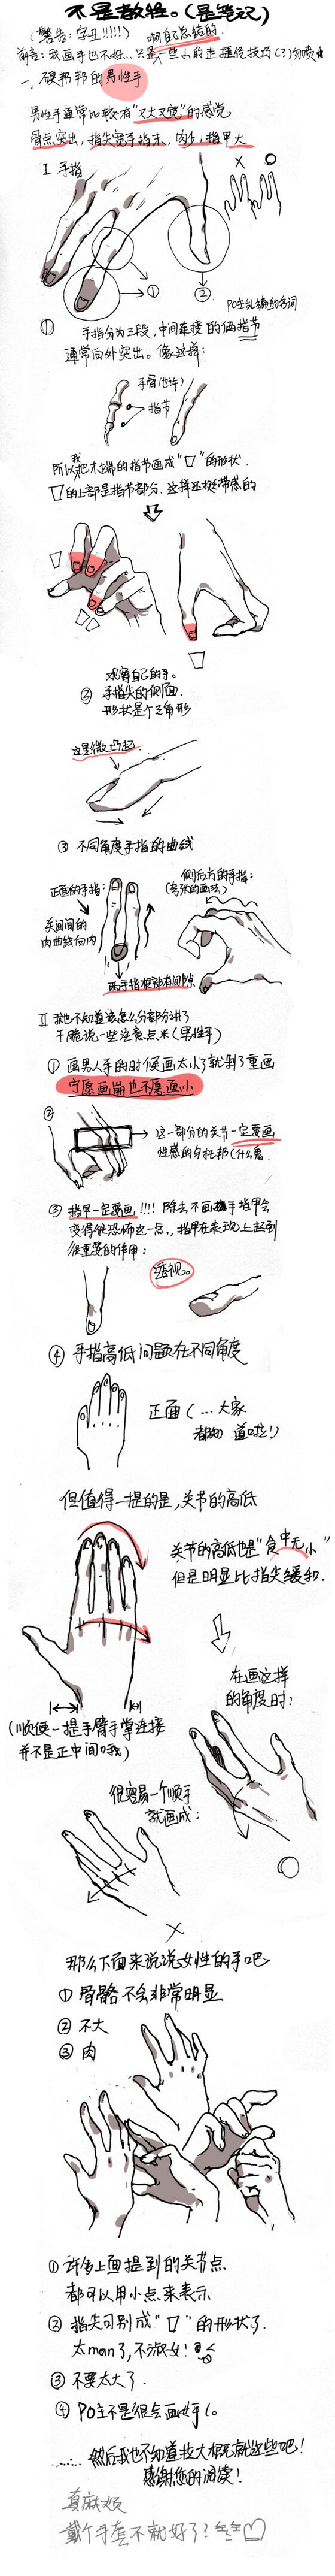 不是教程。(是笔记)
(警告:字丑!!!!!) 啊自己总结的.
前言:我画手也不好…只是一些小的走捷径技巧(?)勿喷☆
一、硬邦邦的男性手
男性手通常比较有"又大又宽"的感觉
骨点突出，指尖宽手指末，肉少，指甲大
I 手指
X O
① ②
PO主乱编的名词
① 手指分为三段,中间连接的俩指节
通常向外突出。像这样:
手骨(也许)
指节
所以我把末端的指节画成"▽"的形状.
▽的上部是指节部分.这样还挺带感的
观察自己的手。
② 手指尖的侧面.
形状是个三角形
这里微凸起.
③ 不同角度手指的曲线
正面的手指:
侧后方的手指:
(夸张的画法)
关间间的
内曲线向内
两手指根部有间隙
II 我也不知道该怎么分部分讲了
干脆说一些注意点米(男性手)
① 画男人手的时候画太小了就剁了重画
宁愿画崩也不愿画小
②
这一部分的关节一定要画
性感的分托邦(什么鬼
③ 指甲一定要画!!!! 除去不画指甲会
变得很恐怖这一点,,指甲在表现上起到
很重要的作用:
透视。
④ 手指高低问题在不同角度
正面(…大家
都知道啦!)
但值得一提的是,关节的高低
关节的高低也是"食中无小"
但是明显比指尖缓和.
在画这样
的角度时:
(顺便一提手臂手掌连接
并不是正中间哦)
很容易一个顺手
就画成:
X
那么下面来说说女性的手吧
① 骨骼不会非常明显
② 不大
③ 肉
① 许多上面提到的关节点
都可以用小点来表示
② 指尖可别成"▽"的形状了.
太man了,不淑女!
③ 不要太大了.
④ PO主不是很会画女手/。
…… 然后我也不知道拉大概就这些吧!
感谢您的阅读!
真麻烦
戴个手套不就好了?